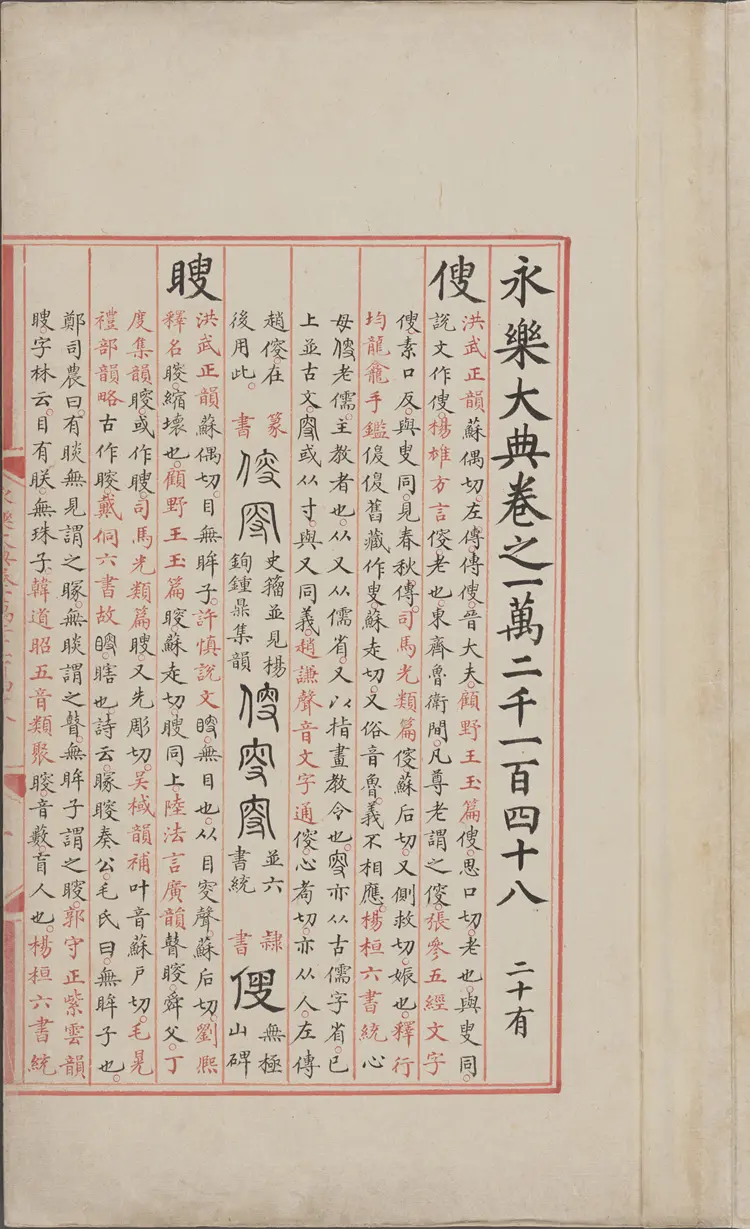 永樂大典卷之一萬二千一百四十八 二十有
傁
洪武正韻蘇偶切左傳傳傁晉大夫顧野王玉篇傁思口切老也與叟同
說文作傁楊雄方言傁老也東齊魯衛間凡尊老謂之傁張參五經文字
傁素口反與叟同見春秋傳司馬光類篇傁蘇后切又側救切娠也釋行
均龍龕手鑑傁傁舊藏作叟蘇走切又俗音魯義不相應楊桓六書統心
母傁老儒主教者也从又从儒省又以指畫教令也叜亦从古儒字省已
上並古文叜或从寸與又同義趙謙聲音文字通傁心耇切亦从人左傳
趙傁在
後用此
篆
書
傁叜
史籀並見楊
鉤鍾鼎集韻
傁叜叜
並六
書統
隸
書
傁
無極
山碑
瞍
洪武正韻蘇偶切目無眸子許慎說文瞍無目也从目叜聲蘇后切劉熙
釋名瞍縮壞也顧野王玉篇瞍蘇走切瞍同上陸法言廣韻瞽瞍舜父丁
度集韻瞍或作瞍司馬光類篇瞍又先彫切吳棫韻補叶音蘇戶切毛晃
禮部韻略古作瞍戴侗六書故瞍瞎也詩云矇瞍奏公毛氏曰無眸子也
鄭司農曰有眹無見謂之矇無眹謂之瞽無眸子謂之瞍郭守正紫雲韻
瞍字林云目有眹無珠子韓道昭五音類聚瞍音藪盲人也楊桓六書統